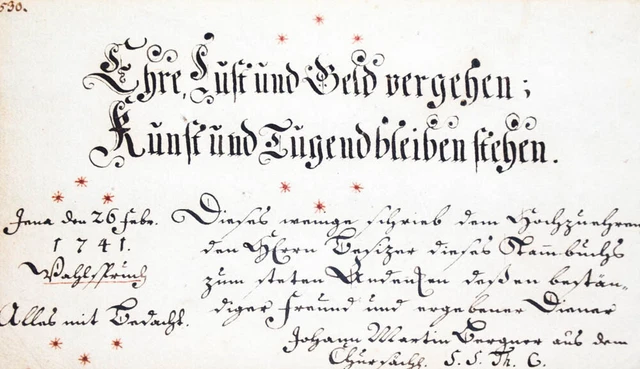 530.
Ehre, Lust und Geld vergehen;
Kunst und Tugend bleiben stehen.
Jena den 26 Febr.
1741.
Wahlspruch
Alles mit Bedacht.
Dieses wenige schrieb dem Hochzuehren
den HErrn Besizer dieses Stammbuchs
zum steten Andenken deßen bestän-
diger Freund und ergebener Diener
Johann Martin Bergner aus dem
Chursächß. S. S. Th. C.